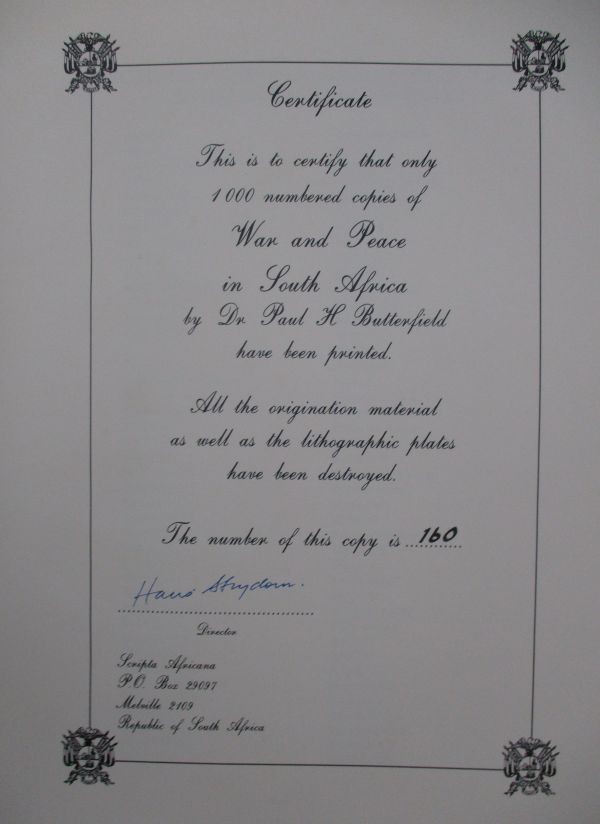 Certificate
This is to certify that only
1 000 numbered copies of
War and Peace
in South Africa
by Dr Paul H Butterfield
have been printed.
All the origination material
as well as the lithographic plates
have been destroyed.
The number of this copy is 160
Hans Strydom.
Director
Scripta Africana
P.O. Box 29097
Melville 2109
Republic of South Africa